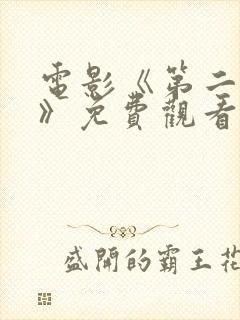 電影《第二
》免費觀看
盛開的霸王花